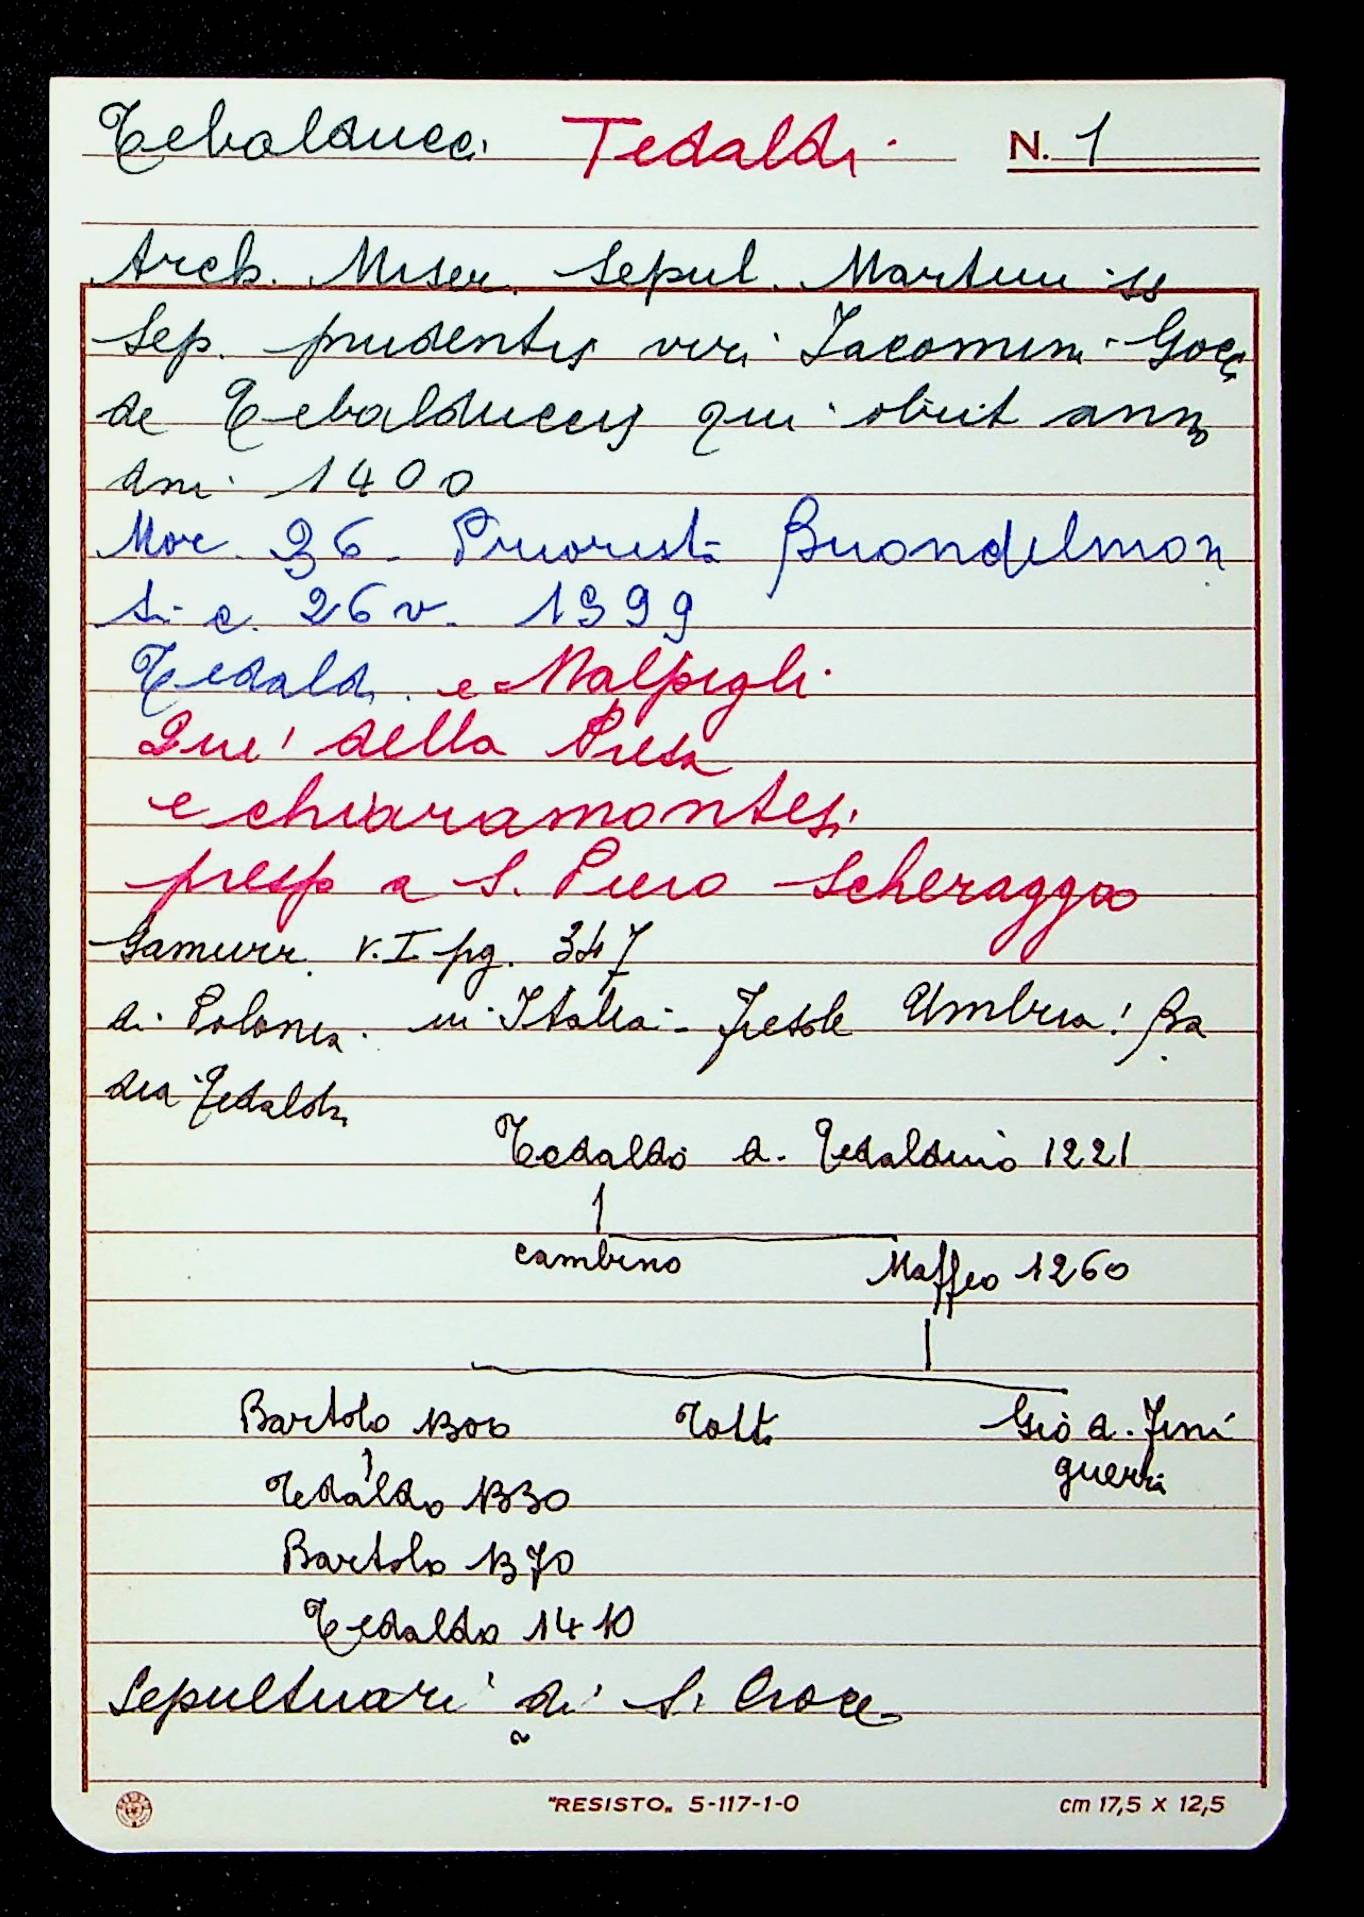 Tebalducci Tedaldi N. 1
Arch. Miser. Sepul. Martini ss
Sep. prudentis viri Iacomini Goçç
de Tebalduccis qui obiit anno
dni 1400
Mor. 36. Priorista Buondelmon
ti c. 26 v. 1399
Tedaldi e Malpigli
Qui della Presa
e chiaramontesi
presso a S. Piero Scheraggio
Gamurr. v. I pg. 347
di Polonia. in Italia - Fiesole Umbria! Ba
dia Tedalda
Tedaldo d. Tedaldino 1221
Cambino Maffeo 1260
Bartolo 1300 Totto Gio d. Fini
guerra
Tedaldo 1330
Bartolo 1370
Tedaldo 1410
Sepultuari di S. Croce
"RESISTO" 5-117-1-0 cm 17,5 X 12,5